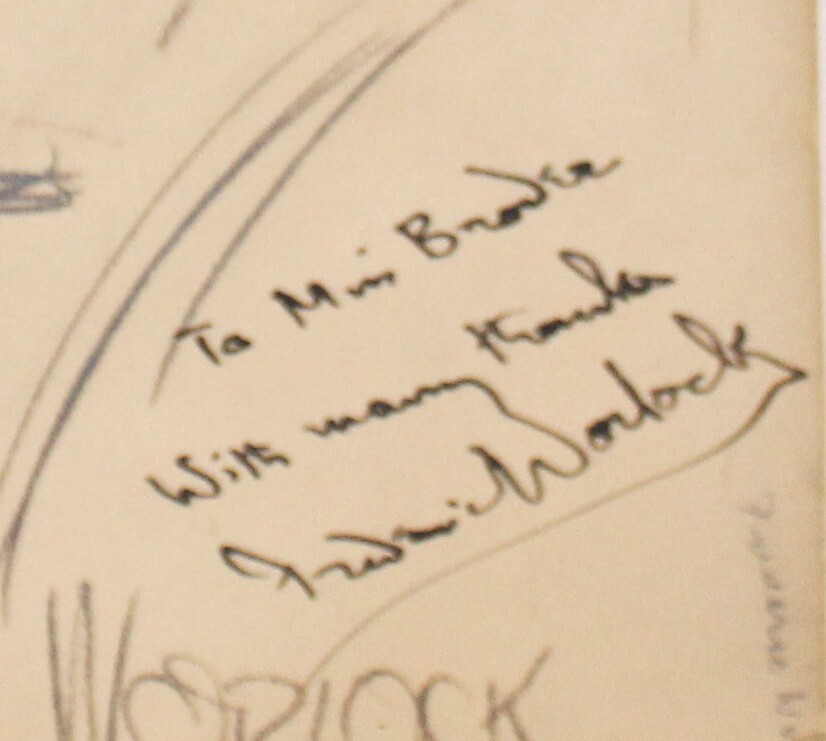 To Miss Brooke
With many thanks
Frederic Worlock
WORLOCK